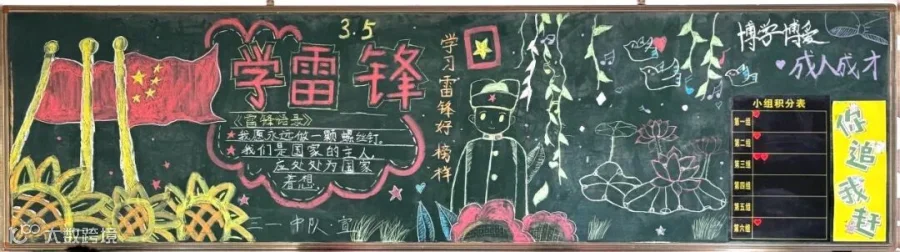 3.5
学雷锋
《雷锋语录》
★我愿永远做一颗螺丝钉。
★我们是国家的主人
应处处为国家
着想。
三一中队 宣
学习雷锋好榜样
博学博爱
成人成才
小组积分表
第一组
第二组
第三组
第四组
第五组
第六组
你追我赶
大数跨境